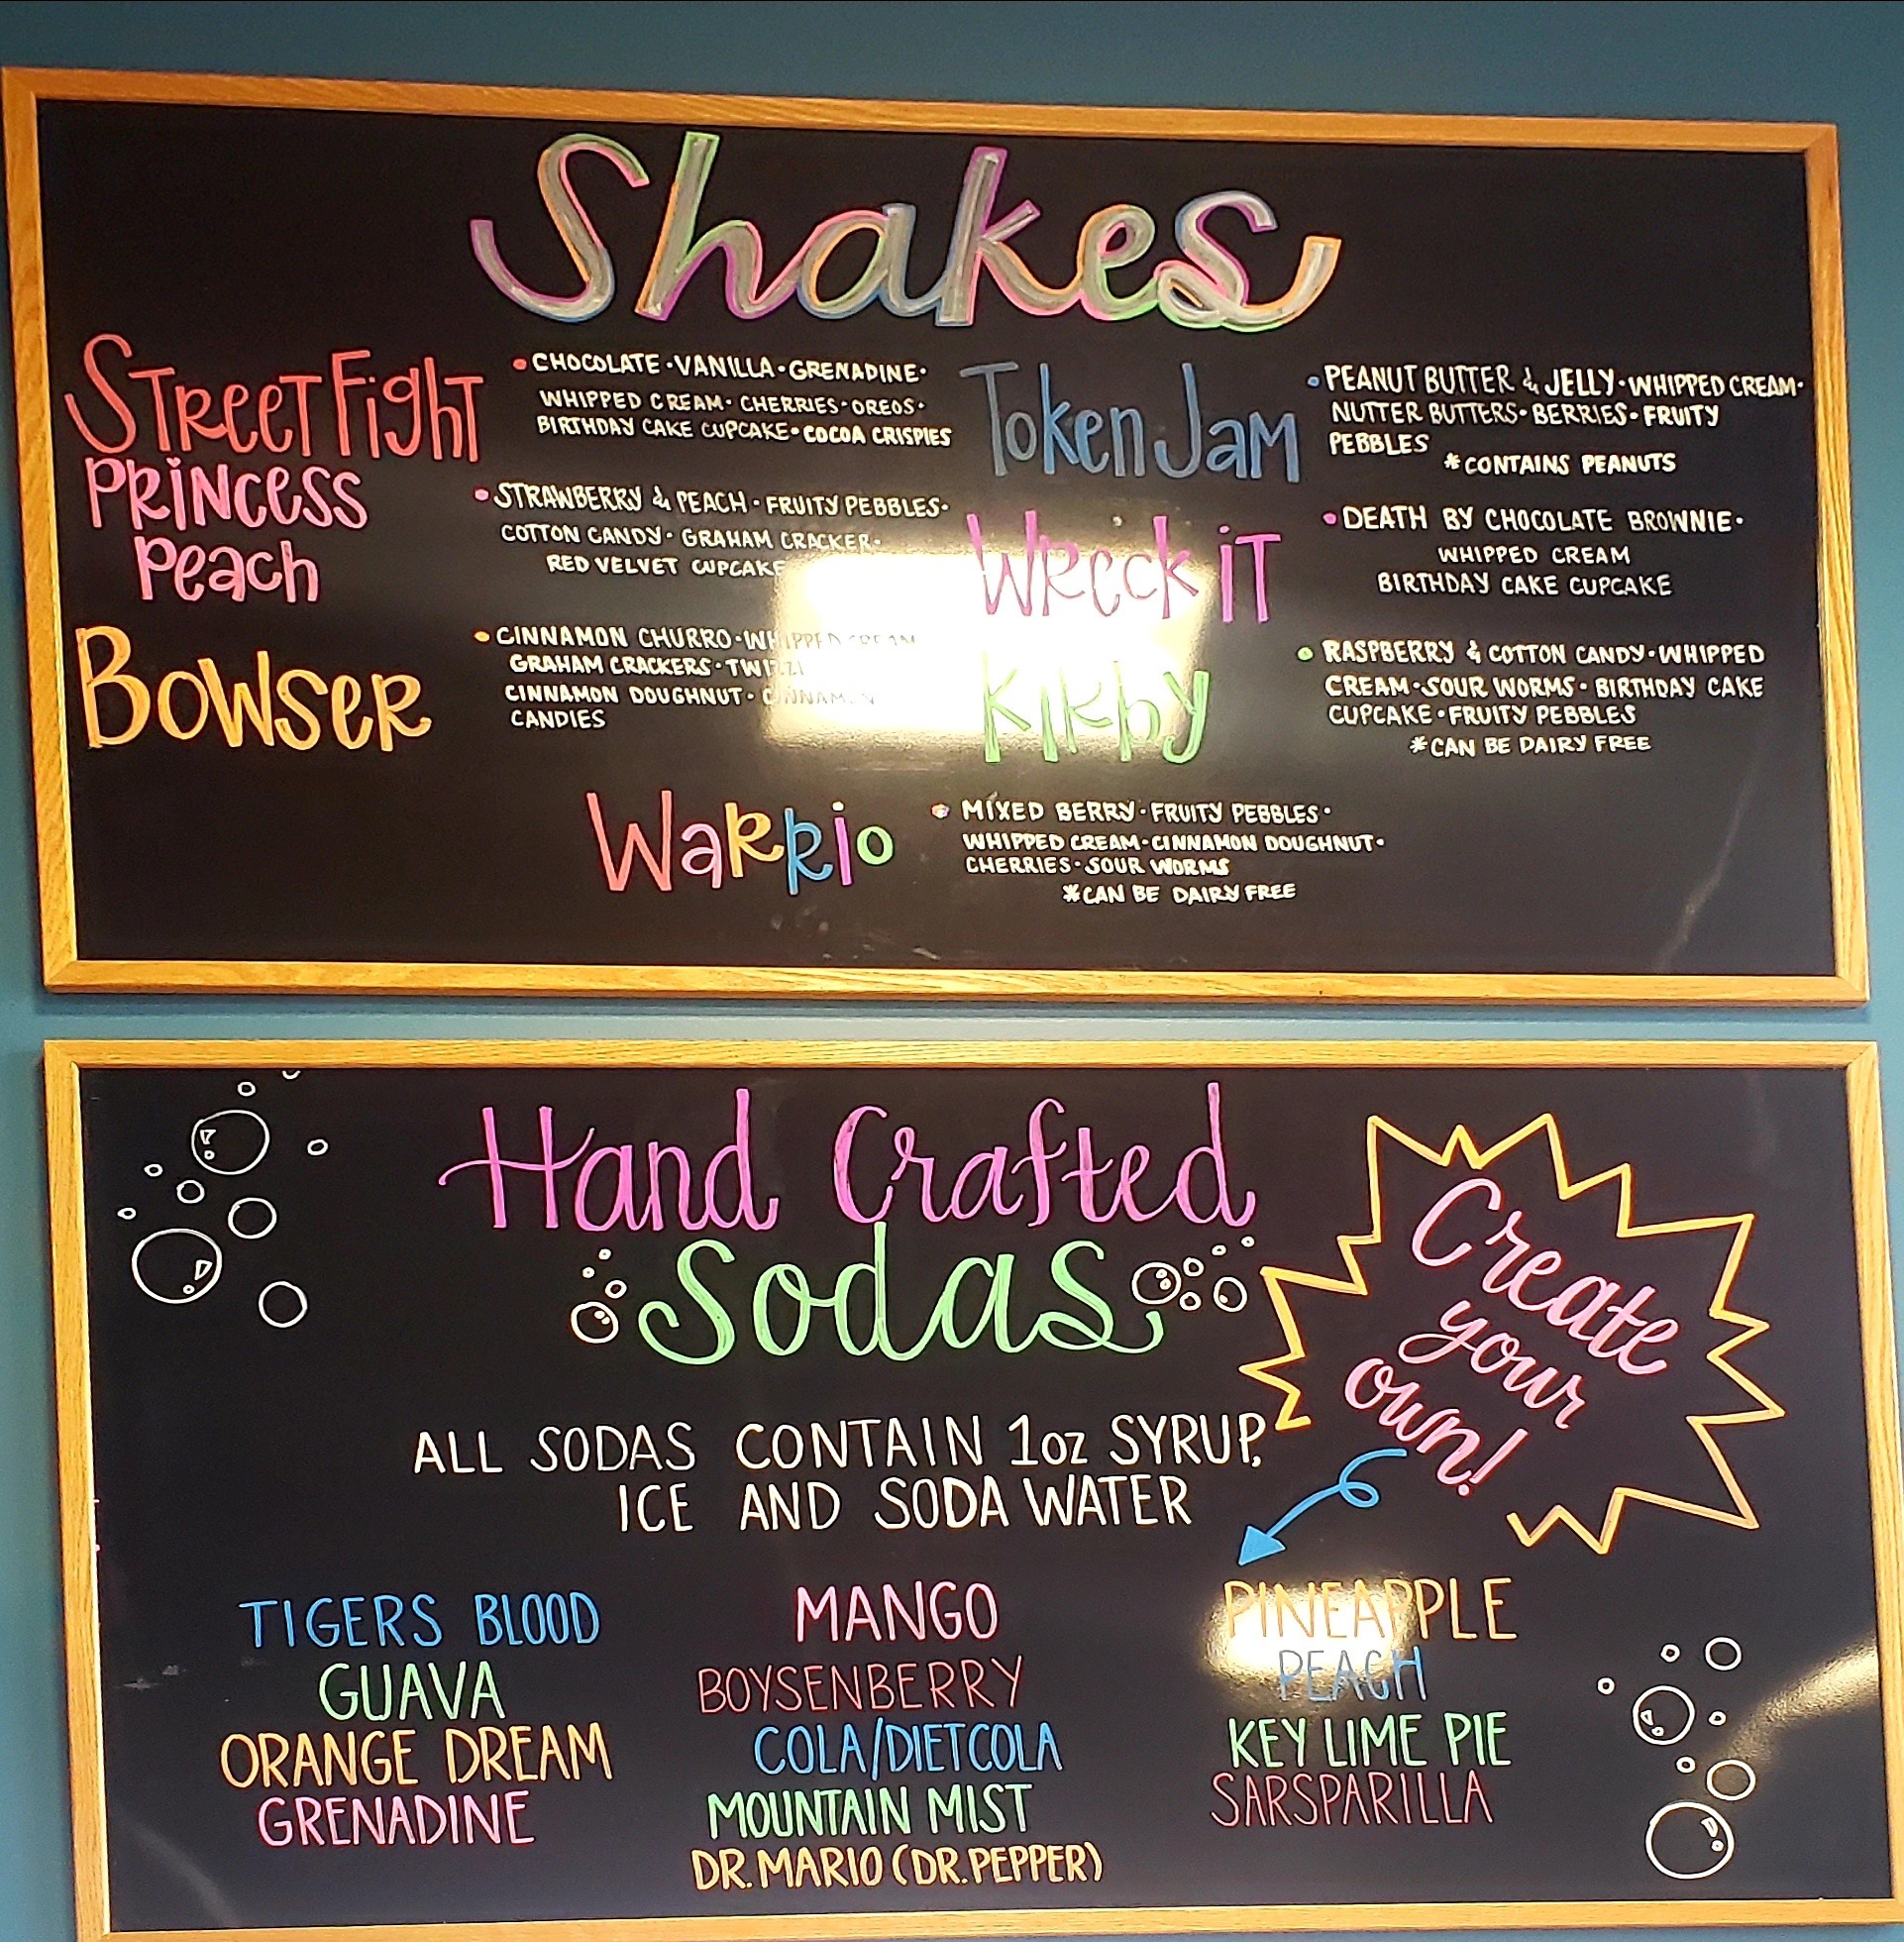 Shakes
STREET FighT
• CHOCOLATE • VANILLA • GRENADINE •
WHIPPED CREAM • CHERRIES • OREOS •
BIRTHDAY CAKE CUPCAKE • COCOA CRISPIES
PRINCESS
Peach
• STRAWBERRY & PEACH • FRUITY PEBBLES •
COTTON CANDY • GRAHAM CRACKER •
RED VELVET CUPCAKE
BOWSER
• CINNAMON CHURRO • WHIPPED CREAM
GRAHAM CRACKERS •
CINNAMON DOUGHNUT • CINNAMON
CANDIES
Token Jam
• PEANUT BUTTER & JELLY • WHIPPED CREAM •
NUTTER BUTTERS • BERRIES • FRUITY
PEBBLES
*CONTAINS PEANUTS
Wreck iT
• DEATH BY CHOCOLATE BROWNIE •
WHIPPED CREAM
BIRTHDAY CAKE CUPCAKE
Kirby
• RASPBERRY & COTTON CANDY • WHIPPED
CREAM • SOUR WORMS • BIRTHDAY CAKE
CUPCAKE • FRUITY PEBBLES
*CAN BE DAIRY FREE
WaRRio
• MIXED BERRY • FRUITY PEBBLES •
WHIPPED CREAM • CINNAMON DOUGHNUT •
CHERRIES • SOUR WORMS
*CAN BE DAIRY FREE
Hand Crafted
Sodas
Create
your
own!
ALL SODAS CONTAIN 1oz SYRUP,
ICE AND SODA WATER
TIGERS BLOOD
GUAVA
ORANGE DREAM
GRENADINE
MANGO
BOYSENBERRY
COLA/DIET COLA
MOUNTAIN MIST
DR. MARIO (DR. PEPPER)
PINEAPPLE
PEACH
KEY LIME PIE
SARSPARILLA